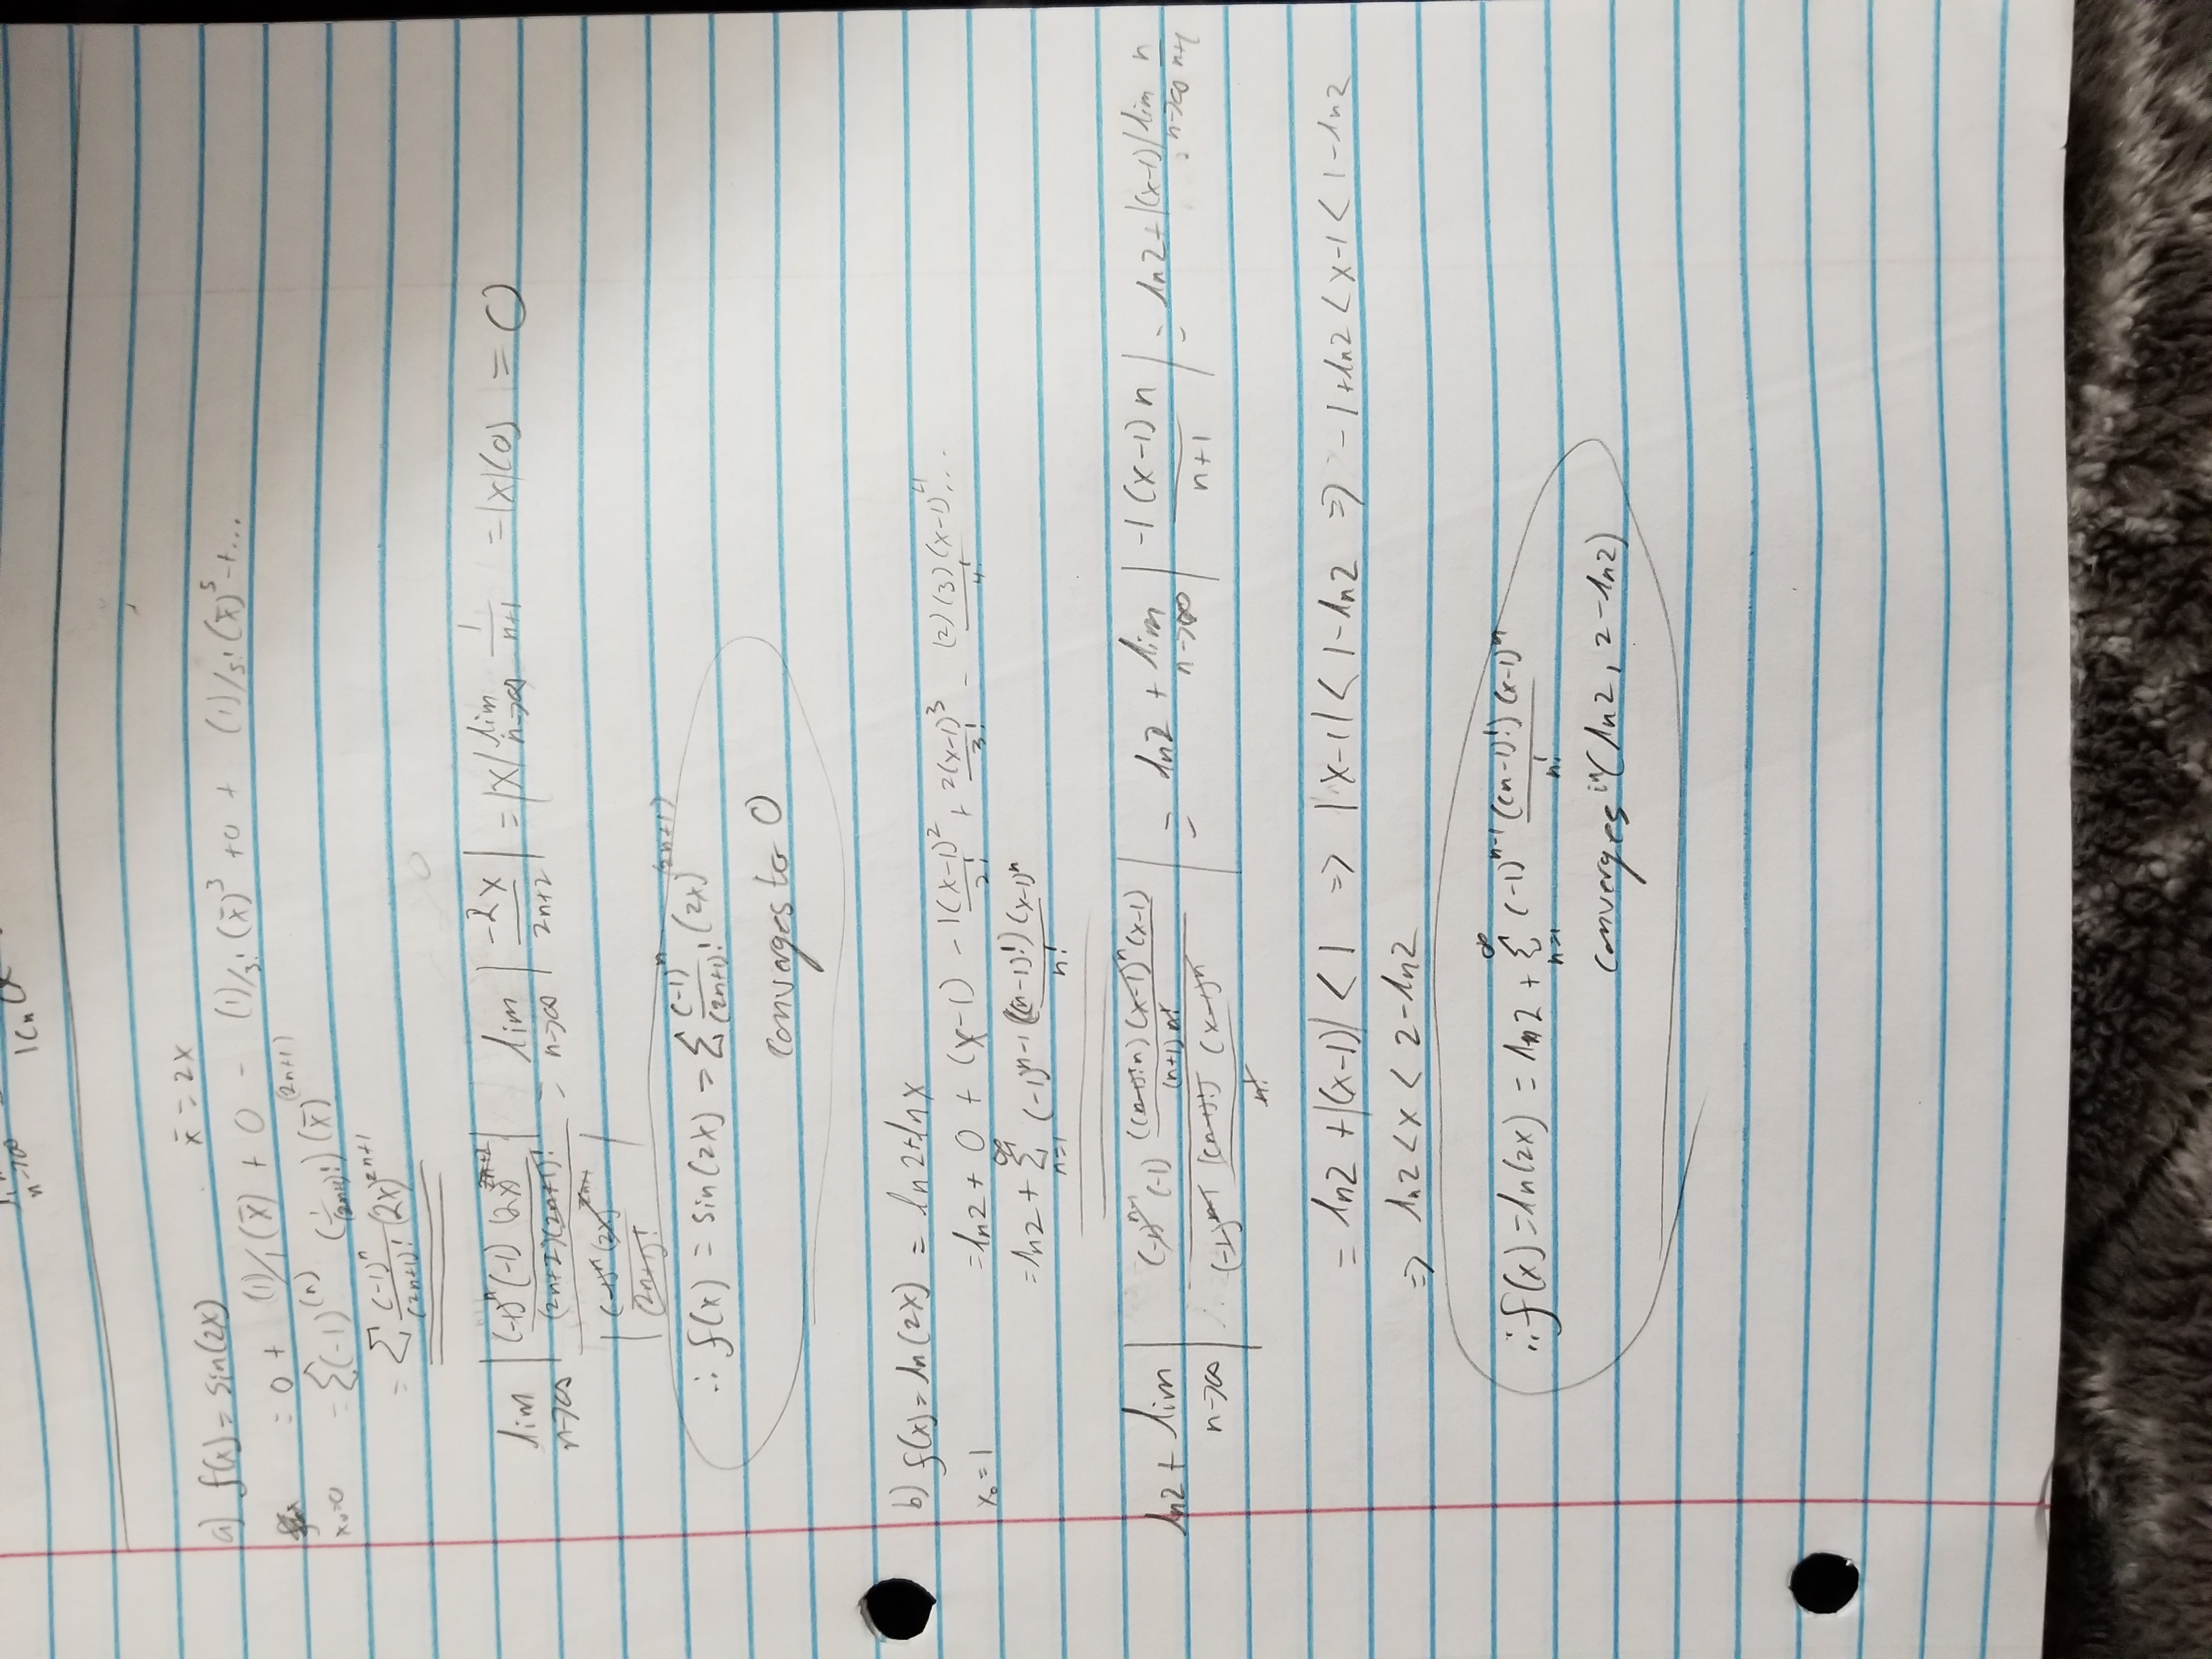 lim n→∞ |cn(x
a) f(x) = sin(2x) x̄ = 2x
= 0 + (1)/1 (x̄) + 0 - (1)/3! (x̄)^3 + 0 + (1)/5! (x̄)^5 -+...
x₀=0 = Σ(-1)^(n) (1/(2n+1)!) (x̄)^(2n+1)
= Σ (-1)^n/(2n+1)! (2x)^2n+1
lim n→∞ |(-1)^n (-1) (2x)^2n+2 / (2n+2)(2n+1)!| / |(-1)^n (2x)^2n+1 / (2n+1)!| = lim n→∞ |-2x / 2n+2| = |x| lim n→∞ 1/n+1 = |x|(0) = 0
∴ f(x) = sin(2x) = Σ (-1)^n/(2n+1)! (2x)^(2n+1)
converges to 0
b) f(x) = ln(2x) = ln2+lnx
x₀ = 1 = ln2 + 0 + (x-1) - 1(x-1)^2/2! + 2(x-1)^3/3! - (2)(3)(x-1)^4/4! ...
= ln2 + Σ n=1 ∞ (-1)^n-1 ((n-1)!)(x-1)^n / n!
ln2 + lim n→∞ | (-1)^n-1 (-1) ((n-1)!n)(x-1)^n (x-1) / (n+1) n! / (-1)^n-1 ((n-1)!) (x-1)^n / n! | = ln2 + lim n→∞ |-1(x-1)n / n+1| = ln2+|(x-1)| lim n→∞ n/n+1
= ln2 + |(x-1)| < 1 ⇒ |x-1| < 1-ln2 ⇒ -1+ln2 < x-1 < 1-ln2
⇒ ln2 < x < 2-ln2
∴ f(x) = ln(2x) = ln2 + Σ n=1 ∞ (-1)^n-1 ((n-1)!)(x-1)^n / n!
converges in (ln2, 2-ln2)